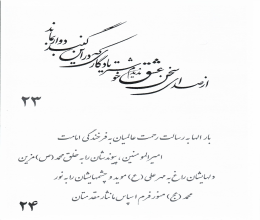 از صدای سخن عشق ندیدم خوشتر یادگاری که در این گنبد دوار بماند
۲۳
بار الها به رسالت رحمت عالمیان به فرخندگی امامت
امیرالمومنین، پیوندشان را به خلق محمد (ص) مزین
و لهایشان راغ به مهر علی (ع) موید و چشمهایشان را به نور
محمد (عج) منور فرم اسپاس ما نثار مقدمتان
۲۴